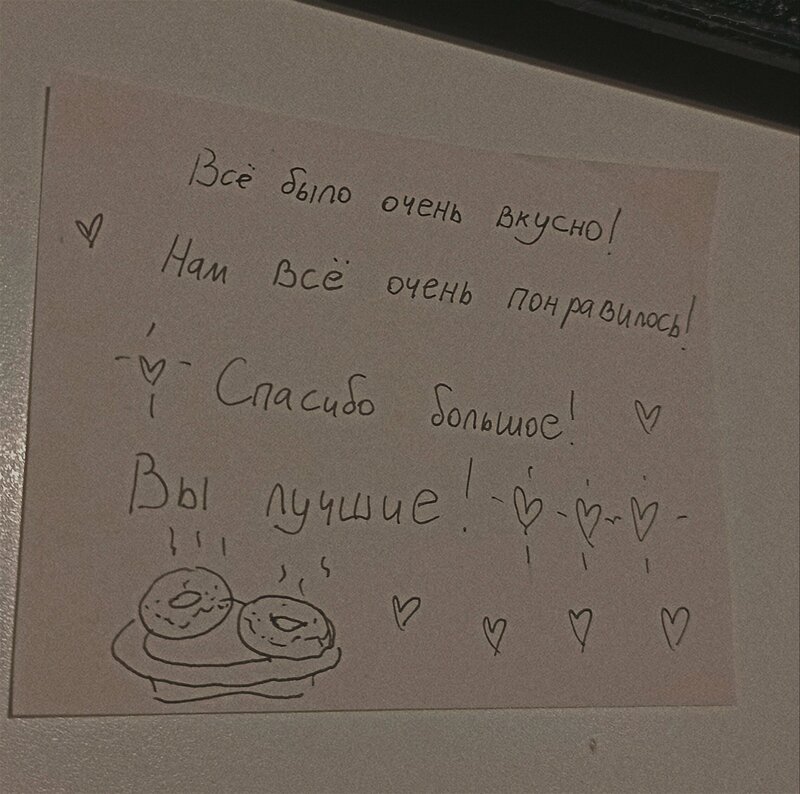 Всё было очень вкусно!
Нам всё очень понравилось!
Спасибо большое!
Вы лучшие!